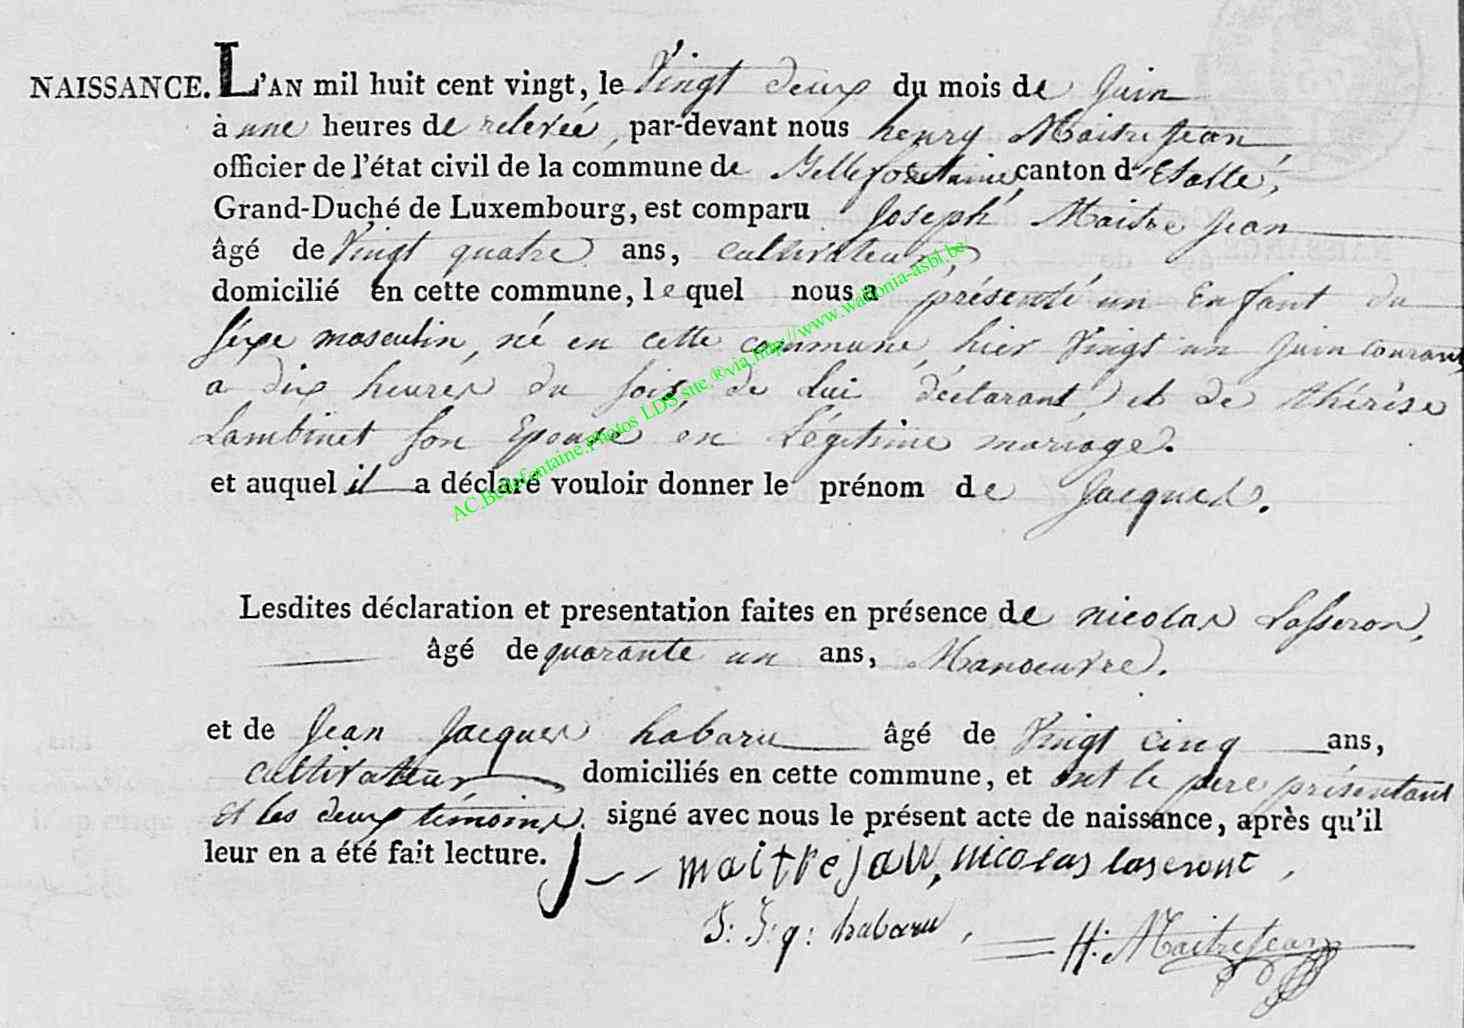 NAISSANCE. L'AN mil huit cent vingt, le Vingt deux du mois de Juin
à une heures de relevée, par-devant nous henry Maitrejean
officier de l'état civil de la commune de Bellefontaine, canton d'Etalle,
Grand-Duché de Luxembourg, est comparu Joseph Maitre Jean
âgé de Vingt quatre ans, cultivateur,
domicilié en cette commune, lequel nous a présenté un Enfant du
séxe masculin, né en cette commune, hier Vingt un Juin courant,
a dix heures du soir, de Lui déclarant, et de thérèse
Lambinet son Epouse en Légitime mariage.
et auquel il a déclaré vouloir donner le prénom de Jacques.
AC.Bellefontaine.Photos LDS site ®via.http//www.wallonia-asbl.be
Lesdites déclaration et presentation faites en présence de nicolas Lasseron,
âgé de quarante un ans, Manoeuvre.
et de Jean Jacques habaru âgé de Vingt cinq ans,
cultivateur domiciliés en cette commune, et ont le pere présentant
et les deux témoins. signé avec nous le présent acte de naissance, après qu'il
leur en a été fait lecture.
maitrejan, nicolas laseront,
J: J:q: habaru, H: Maitrejean